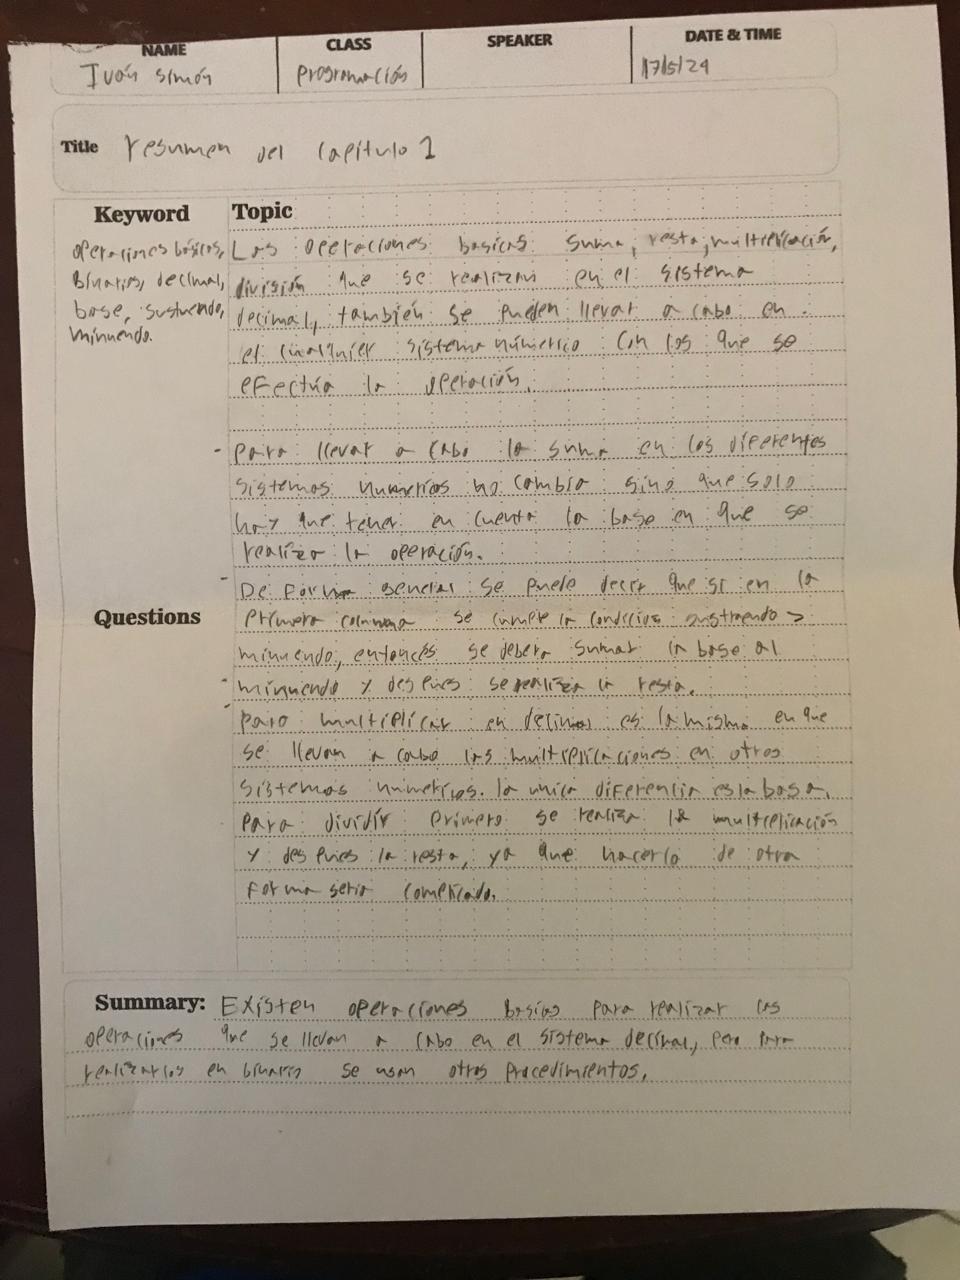 NAME CLASS SPEAKER DATE & TIME
Iván Simón Programación 17/5/24
Title resumen del capítulo 1
Keyword Topic
operaciones básicos,
Binarios, decimal,
base, sustraendo,
minuendo.
Las operaciones basicas suma, resta, multiplicación,
división que se realizan en el sistema
decimal, también se pueden llevar a cabo en
el cualquier sistema númerico con los que se
efectúa la operación.
- Para llevar a cabo la suma en los diferentes
sistemas numericos no cambia sino que solo
hay que tener en cuenta la base en que se
realiza la operación.
- De forma general se puede decir que si en la
Questions
Primera columna se cumple la condición sustraendo >
minuendo, entonces se debera sumar la base al
- minuendo y despues se realiza la resta.
- para multiplicar en decimal es la misma en que
se llevan a cabo las multiplicaciones en otros
sistemas numericos. la unica diferencia es la base.
- Para dividir primero se realiza la multiplicación
y despues la resta, ya que hacerlo de otra
forma seria complicado.
Summary: Existen operaciones basicas para realizar las
operaciones que se llevan a cabo en el sistema decimal, pero para
realizarlos en binario se usan otros procedimientos.